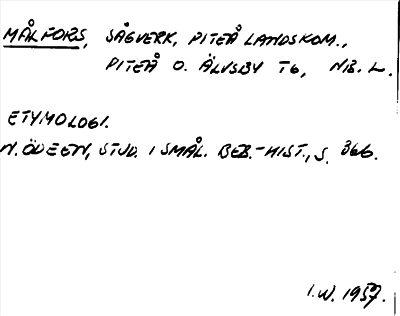 MÅLFORS, SÅGVERK, PITEÅ LANDSKOM.,
PITEÅ O. ÄLVSBY TG, NB. L.
ETYMOLOGI.
N. ÖDEEN, STUD. I SMÅL. BEB.-HIST., S. 366.
I.W. 1957.